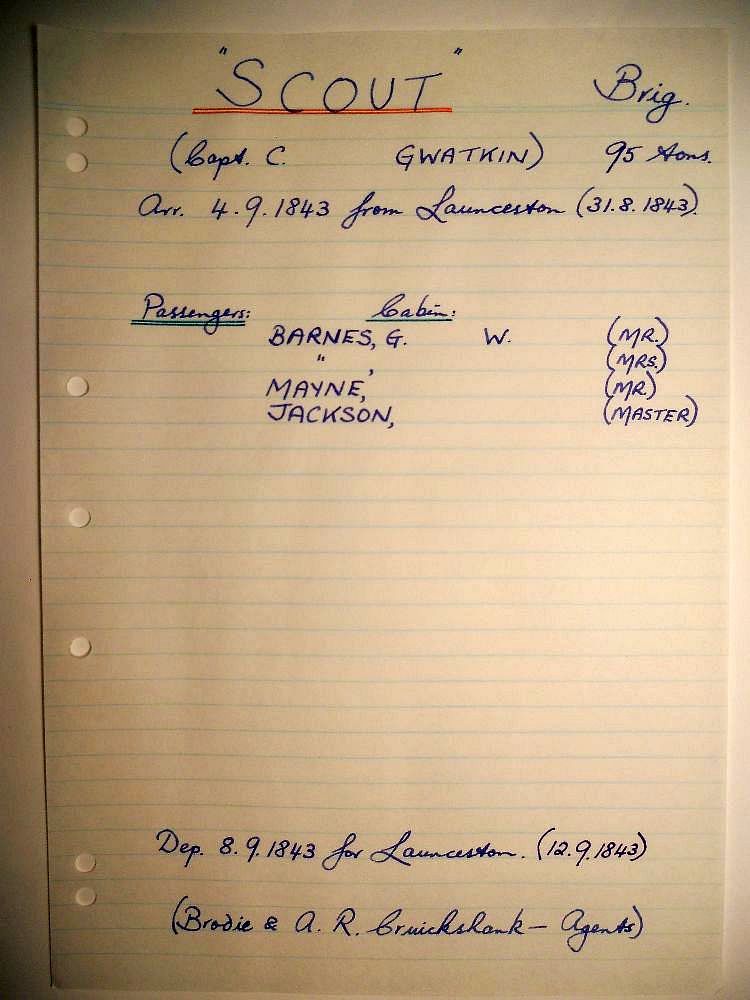 "SCOUT" Brig.
(Capt. C. GWATKIN) 95 tons.
Arr. 4.9.1843 from Launceston (31.8.1843).
Passengers: Cabin:
BARNES, G. W. (MR.)
" , (MRS.)
MAYNE, (MR.)
JACKSON, (MASTER)
Dep. 8.9.1843 for Launceston. (12.9.1843)
(Brodie & A. R. Cruickshank - Agents)